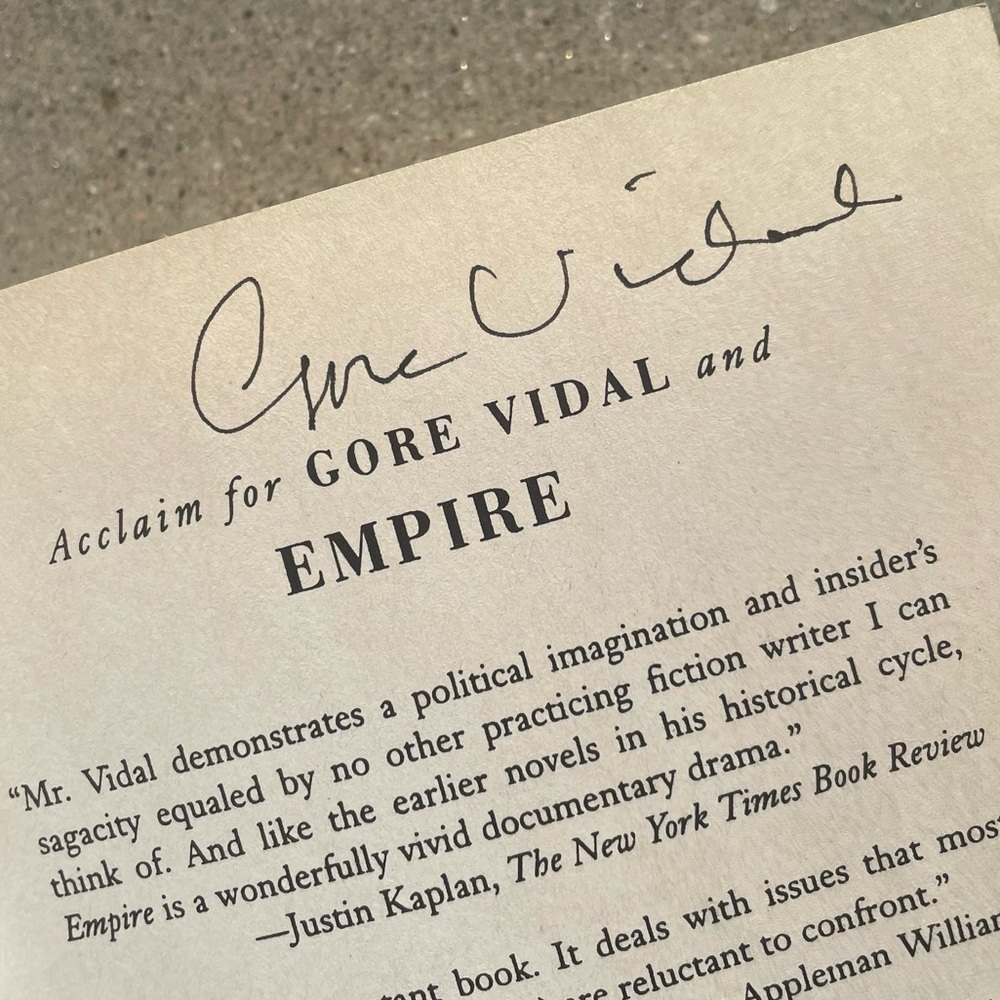 Gore Vidal
Acclaim for GORE VIDAL and
EMPIRE
“Mr. Vidal demonstrates a political imagination and insider’s
sagacity equaled by no other practicing fiction writer I can
think of. And like the earlier novels in his historical cycle,
Empire is a wonderfully vivid documentary drama.”
—Justin Kaplan, The New York Times Book Review
book. It deals with issues that
reluctant to confront.”
Appleman